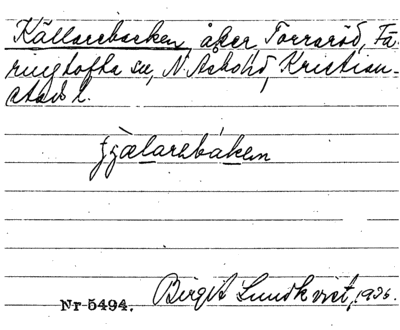 Källarebacken, åker, Torraröd, Fä-
ringtofta sn, N. Åsbohd, Kristian-
stads l.
fjælarebáken
Nr 5494. Birgit Lundkvist, 1936.